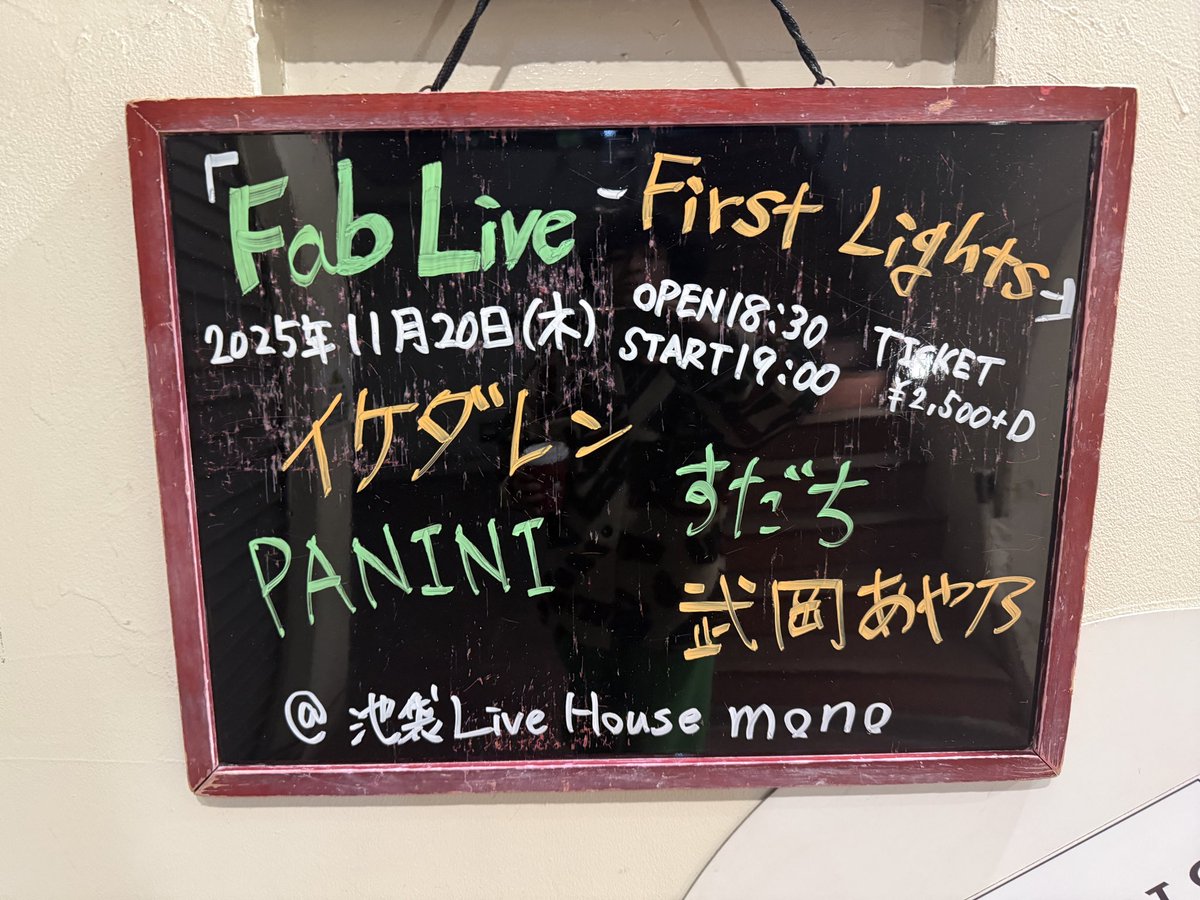 「Fab Live - First Lights」
2025年11月20日(木)
OPEN18:30
START19:00
TICKET
¥2,500+D
イケダレン
すだち
PANINI
武岡あや乃
@池袋Live House mono